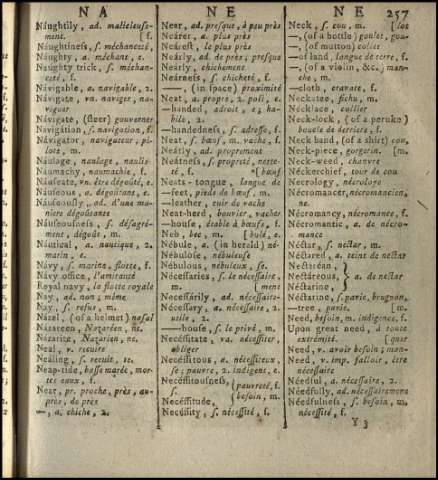 N A
Náughtily, ad. malicieuse-
ment. [f.
Náughtiness, ſ. méchanceté,
Náughty, a. méchant, e.
Náughty trick, ſ. méchan-
ceté, f.
Návigable, a. navigable, 2.
Návigate, vn. naviger, na-
viguer
Návigate, (ſteer) gouverner
Navigátion, ſ. navigation, f.
Návigator, navigateur; pi-
lote, m.
Náulage, naulage, naulis
Náumachy, naumachie, f.
Náuſeate, vn. être dégoûté, e.
Náuſeous, a. dégoûtant, e.
Náuſeouſly, ad. d'une ma-
niere dégoûtante
Náuſeouſneſs, ſ. déſagré-
ment, dégoût, m.
Náutical, a. nautique, 2.
marin, e.
Návy, ſ. marine, flotte, f.
Navy office, l'amirauté
Royal navy, la flotte royale
Nay, ad. non; même
Nay, ſ. refus, m.
Nazal, (of a helmet) naſal
Názareen, Nazaréen, ne.
Názarite, Nazaréen, ne.
Neal, v. recuire
Nealing, ſ. recuit, te.
Neap-tide, baſſe marée, mor-
tes eaux, f.
Near, pr. proche, près, au-
près, de près
—, a. chiche, 2.
N E
Near, ad. preſque, à peu près
Néarer, a. plus près
Néareſt, le plus près
Néarly, ad. de près; preſque
Néarly, chichement
Néarneſs, ſ. chicheté, f.
——, (in ſpace) proximité
Neat, a. propre, 2. poli, e.
—handed, adroit, e; ha-
bile, 2.
—handedneſs, ſ. adreſſe, f.
Neat, ſ. bœuf, m. vache, f.
Néatly, ad. proprement
Néatneſs, ſ. propreté, nette-
té, f. [bœuf
Neats-tongue, langue de
—feet, pieds de bœuf, m.
—leather, cuir de vache
Neat-herd, bouvier, vacher
—houſe, étable à bœufs, f.
Neb, bec, m.
Nébule, a. (in herald) né-
Nébuloſe, nébuleuſe
Nébulous, nébuleux, ſe.
Néceſſaries, ſ. le néceſſaire,
m. [ment
Néceſſarily, ad. néceſſaire-
Néceſſary, a. néceſſaire, 2.
utile, 2.
—houſe, ſ. le privé, m.
Neceſſitate, va. néceſſiter,
obliger
Neceſſitous, a. néceſſiteux,
ſe; pauvre, 2. indigent, e.
Neceſſitouſneſs, pauvreté, f.
Neceſſitude, beſoin, m.
Neceſſity, ſ. néceſſité, f.
N E 257
Neck, ſ. cou, m.
—, (of a bottle) goulet, gou-
—, (of mutton) collier
—of land, langue de terre, f.
—, (of a violin, &c.) man-
che, m.
—cloth, cravate, f.
Neckatee, fichu, m.
Necklace, collier
Neck-lock, (of a peruke)
boucle de derriere, f.
Neck band, (of a ſhirt) cou,
Neck-piece, gorgerin. [m.
Neck-weed, chanvre
Néckerchief, tour de cou
Necrology, nécrologe
Nécromancer, nécromancien,
ne.
Nécromancy, nécromance, f.
Nécromantic, a. de nécro-
mance
Néctar, ſ. nectar, m.
Néctared, a. teint de nectar
Néctarean,
Nectáreous, a. de nectar
Néctarine,
Néctarine, ſ. pavie, brugnon,
—tree, pavie. [m.
Need, beſoin, m. indigence, f.
Upon great need, à toute
extrémité.
Need, v. avoir beſoin; man-
Need, v. imp. falloir, être
néceſſaire
Néedful, a. néceſſaire, 2.
Néedfully, ad. néceſſairement
Néedfulneſs, ſ. beſoin, m.
néceſſité, f.
Y 3